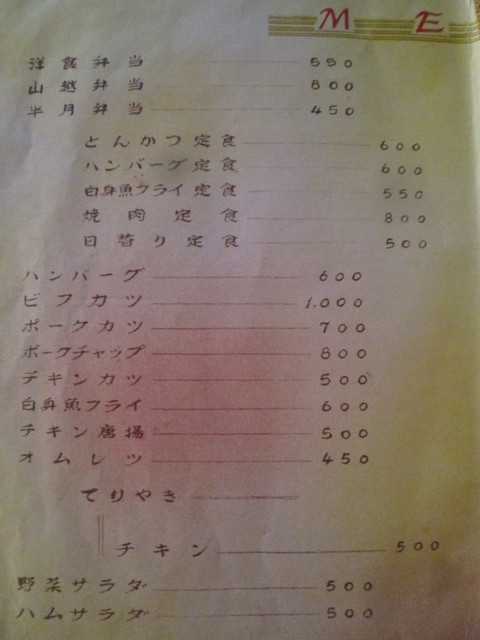 M E
洋食弁当 550
山越弁当 800
半月弁当 450
とんかつ定食 600
ハンバーグ定食 600
白身魚フライ定食 550
焼肉定食 800
日替り定食 500
ハンバーグ 600
ビフカツ 1.000
ポークカツ 700
ポークチャップ 800
チキンカツ 500
白身魚フライ 600
チキン唐揚 500
オムレツ 450
てりやき
チキン 500
野菜サラダ 500
ハムサラダ 500